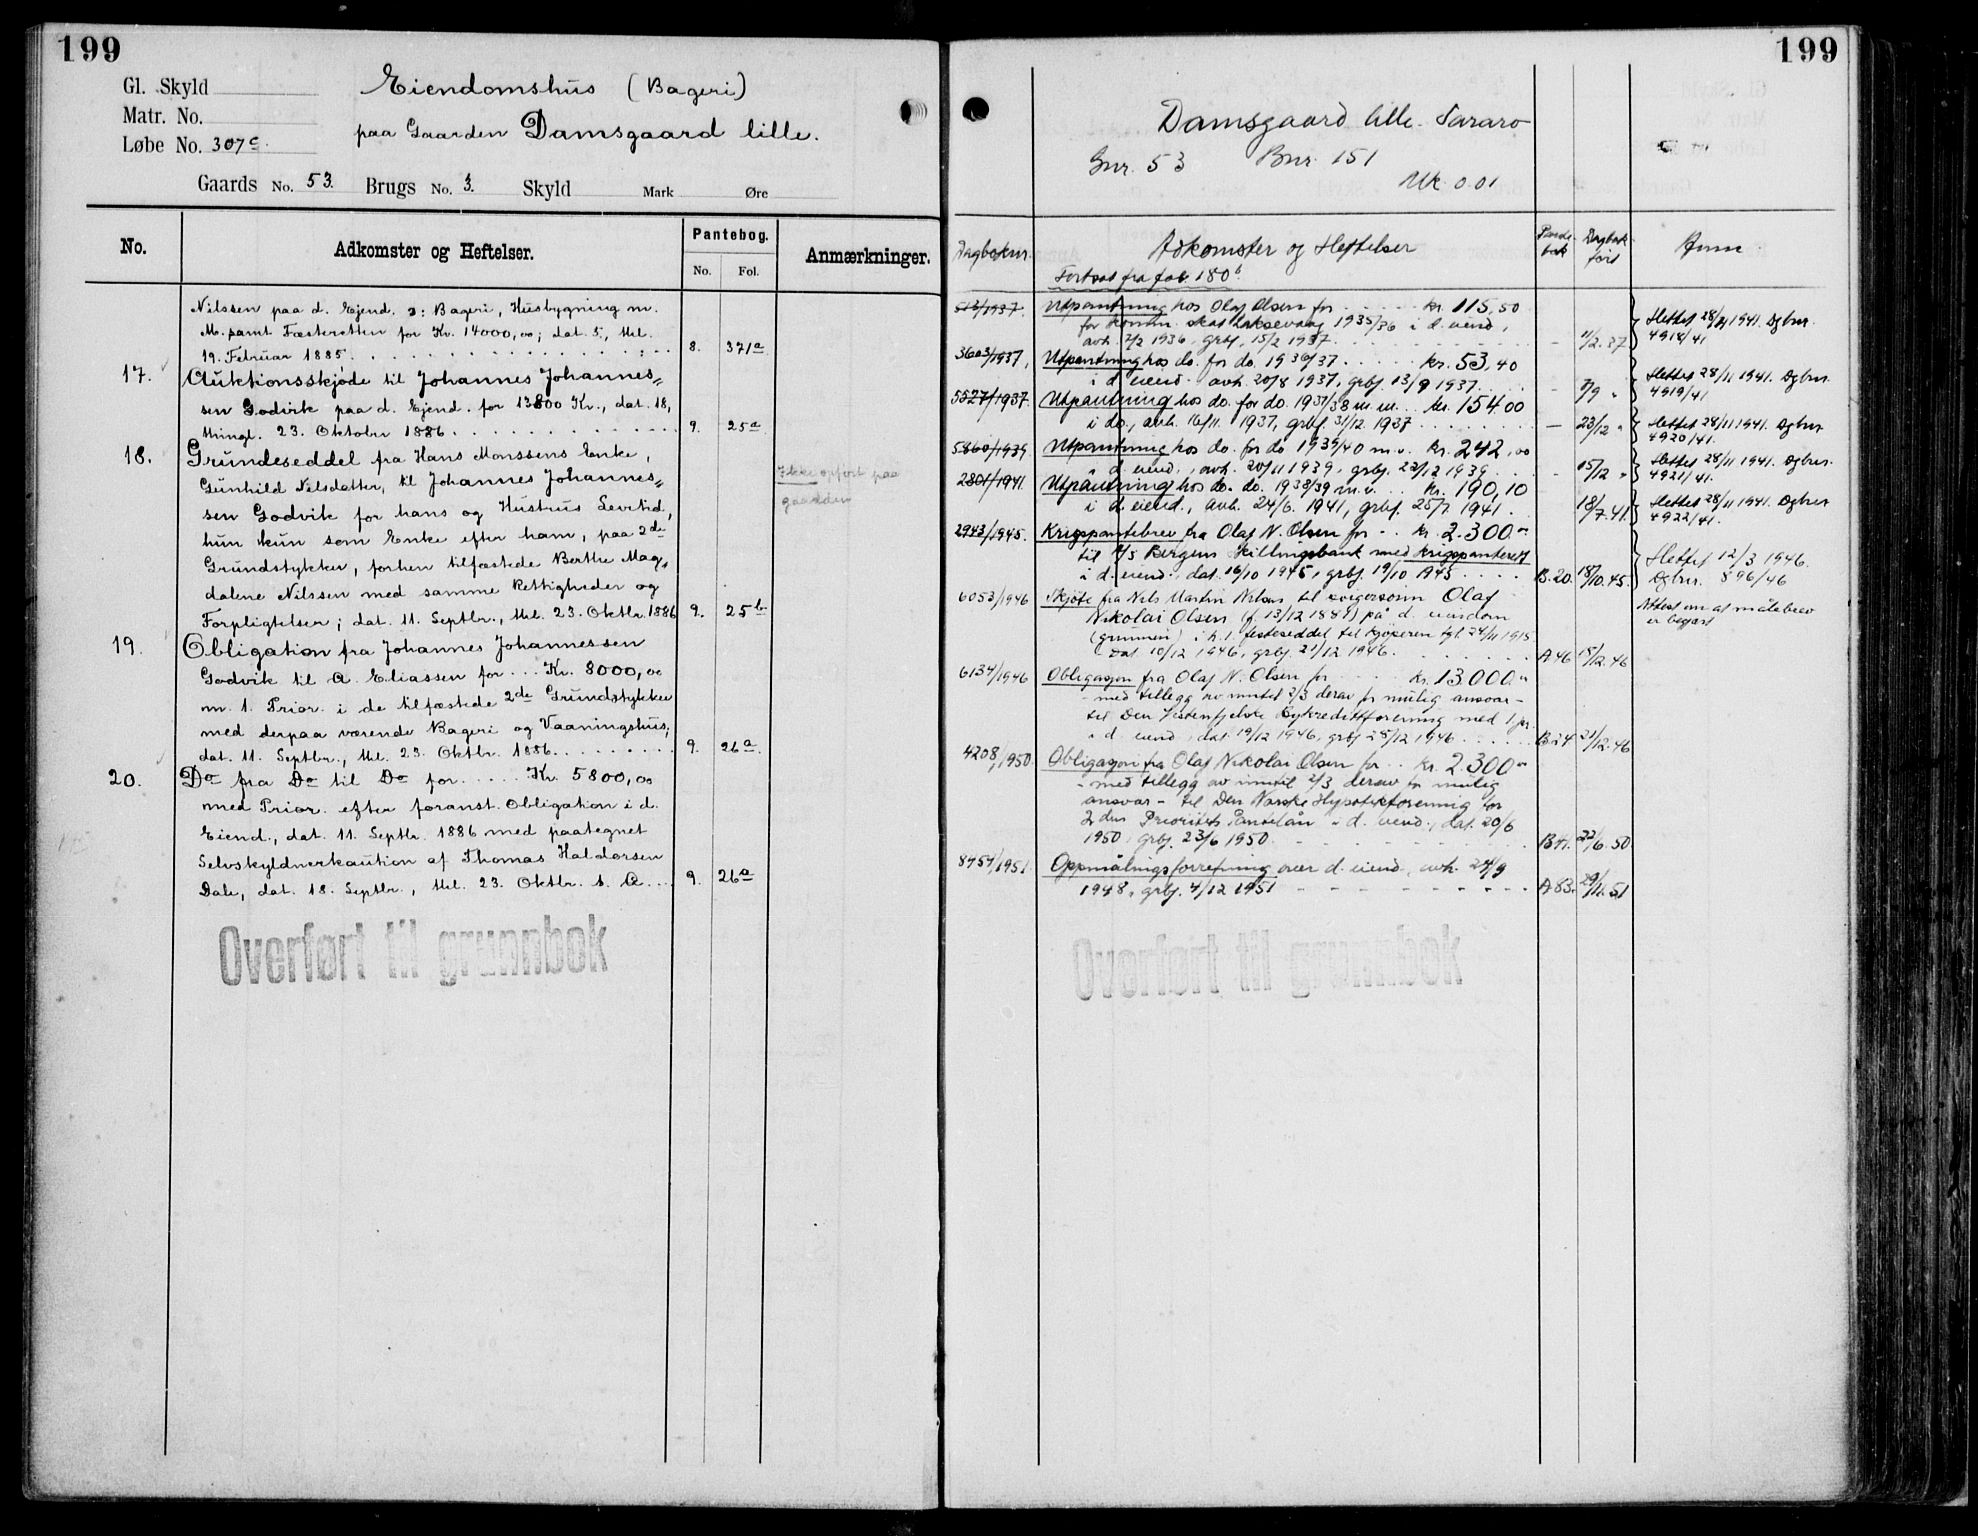 199
Gl. Skyld
Matr. No.
Løbe No. 307c.
Eiendomshus (Bageri)
paa Gaarden Damsgaard lille.
Gaards No. 53. Brugs No. 3. Skyld Mark Øre
No. Adkomster og Heftelser. Pantebog. No. Fol. Anmærkninger.
Nilssen paa d. Ejend. ɔ: Bageri, Husbygning m.
M. samt Fæsteretten for Kr. 14000,00; dat. 5., thl.
19. Februar 1885. 8. 371a
17. Auktionsskjøde til Johannes Johannes„
sen Godvik paa d. Ejend. for 13800 Kr., dat. 18,
thingl. 23. Oktober 1886. 9. 25a
18. Grundeseddel fra Hans Monssens Enke,
Gunhild Nilsdatter, til Johannes Johannes„
sen Godvik for hans og Hustrus Levetid,
hun kun som Enke efter ham, paa 2de
Grundstykker, forhen tilfæstede Berthe Mag„
dalene Nilssen med samme Rettigheder og
Forpligtelser; dat. 11. Septbr., thl. 23. Oktbr. 1886 9. 25b
Ikke opført paa
gaarden
19. Obligation fra Johannes Johannessen
Godvik til A. Eliassen for ... Kr. 8000,00
m. 1. Prior. i de tilfæstede 2de Grundstykker
med derpaa værende Bageri og Vaaningshus,
dat. 11. Septbr., thl. 23. Oktbr. 1886. 9. 26a
20. Do fra Do til Do for ..... Kr. 5800,00
med Prior. efter foranst. Obligation i d.
Eiend., dat. 11. Septbr. 1886 med paategnet
Selvskyldnerkaution af Thomas Haldorsen
Dale, dat. 18. Septbr., thl. 23. Oktbr. s. A. 9. 26a
Overført til grunnbok
199
Damsgaard lille - Sararo
Gnr. 53 Bnr. 151
Mk 0.01
Dagboknr. Adkomster og Heftelser Pantebok Dagbok ført Anm.
Fortsat fra fol. 180b
513/1937. Utpantning hos Olaf Olsen for kr. 115,50
for komm. skat Laksevaag 1935/36 i d. eiend,
avh. 7/2 1936, grbf. 15/2 1937. - 11/2.37 Slettet 28/11 1941. Dgbnr.
4918/41
3603/1937, Utpantning hos do. for do. 1936/37 kr. 53,40
i d. eiend. avh. 20/8 1937, grbf. 13/9 1937. - 7/9 " Slettet 28/11 1941. Dgbnr.
4919/41
5527/1937. Utpantning hos do. for do. 1937/38 m.m. kr. 154 00
i do., avh. 16/11 1937, grbf. 31/12 1937 - 23/12 " Slettet 28/11 1941. Dgbnr
4920/41.
5860/1939 Utpantning hos do. for do 1939/40 m.v. kr. 242,00
i d. eiend., avh. 20/11 1939, grbf. 22/12 1939 - 15/12 " Slettet 28/11 1941. Dgbnr.
4921/41.
2801/1941. Utpantning hos do. do. 1938/39 m.v. kr. 190,10
i d. eiend., avh. 24/6 1941, grbf. 25/7 1941. 18/7.41. Slettet 28/11 1941. Dgbnr
4922/41.
2943/1945. Krigspantebrev fra Olaf N. Olsen for kr. 2.300.-
til A/S Bergens Skillingsbank med krigspanterett
i d. eiend., dat. 16/10 1945, grbf. 19/10 1945 B.20. 18/10.45 Slettet 12/3 1946.
Dgbnr. 896/46
6053/1946 Skjøte fra Nils Martin Nilsen til svigersønn Olaf
Nikolai Olsen (f. 13/12 1881) på d. eiendom
(grunnen) i h.t. festeseddel til kjøperen tgl. 24/11 1915
dat 10/12 1946, grbf. 21/12 1946. A46 18/12.46
Attest om at målebrev
er begjært
6134/1946 Obligasjon fra Olaf N. Olsen for kr. 13.000.-
- med tillegg av inntil 2/3 derav for mulig ansvar -
til Den Vestenfjelske Bykredittforening med 1 pr.
i d. eiend, dat. 19/12 1946, grbf 28/12 1946 B 24 21/12.46
4208/1950 Obligasjon fra Olaf Nikolai Olsen for kr. 2.300.-
- med tillegg av inntil 2/3 derav for mulig
ansvar - til Den Norske Hypotekforening for
2den Prioritets Pantelån i d. eiend., dat. 20/6
1950, grbf. 23/6 1950. B41. 22/6.50
8454/1951 Oppmålingsforretning over d. eiend., avh. 24/9
1948, grbf. 4/12 1951 A83. 29/11.51
Overført til grunnbok